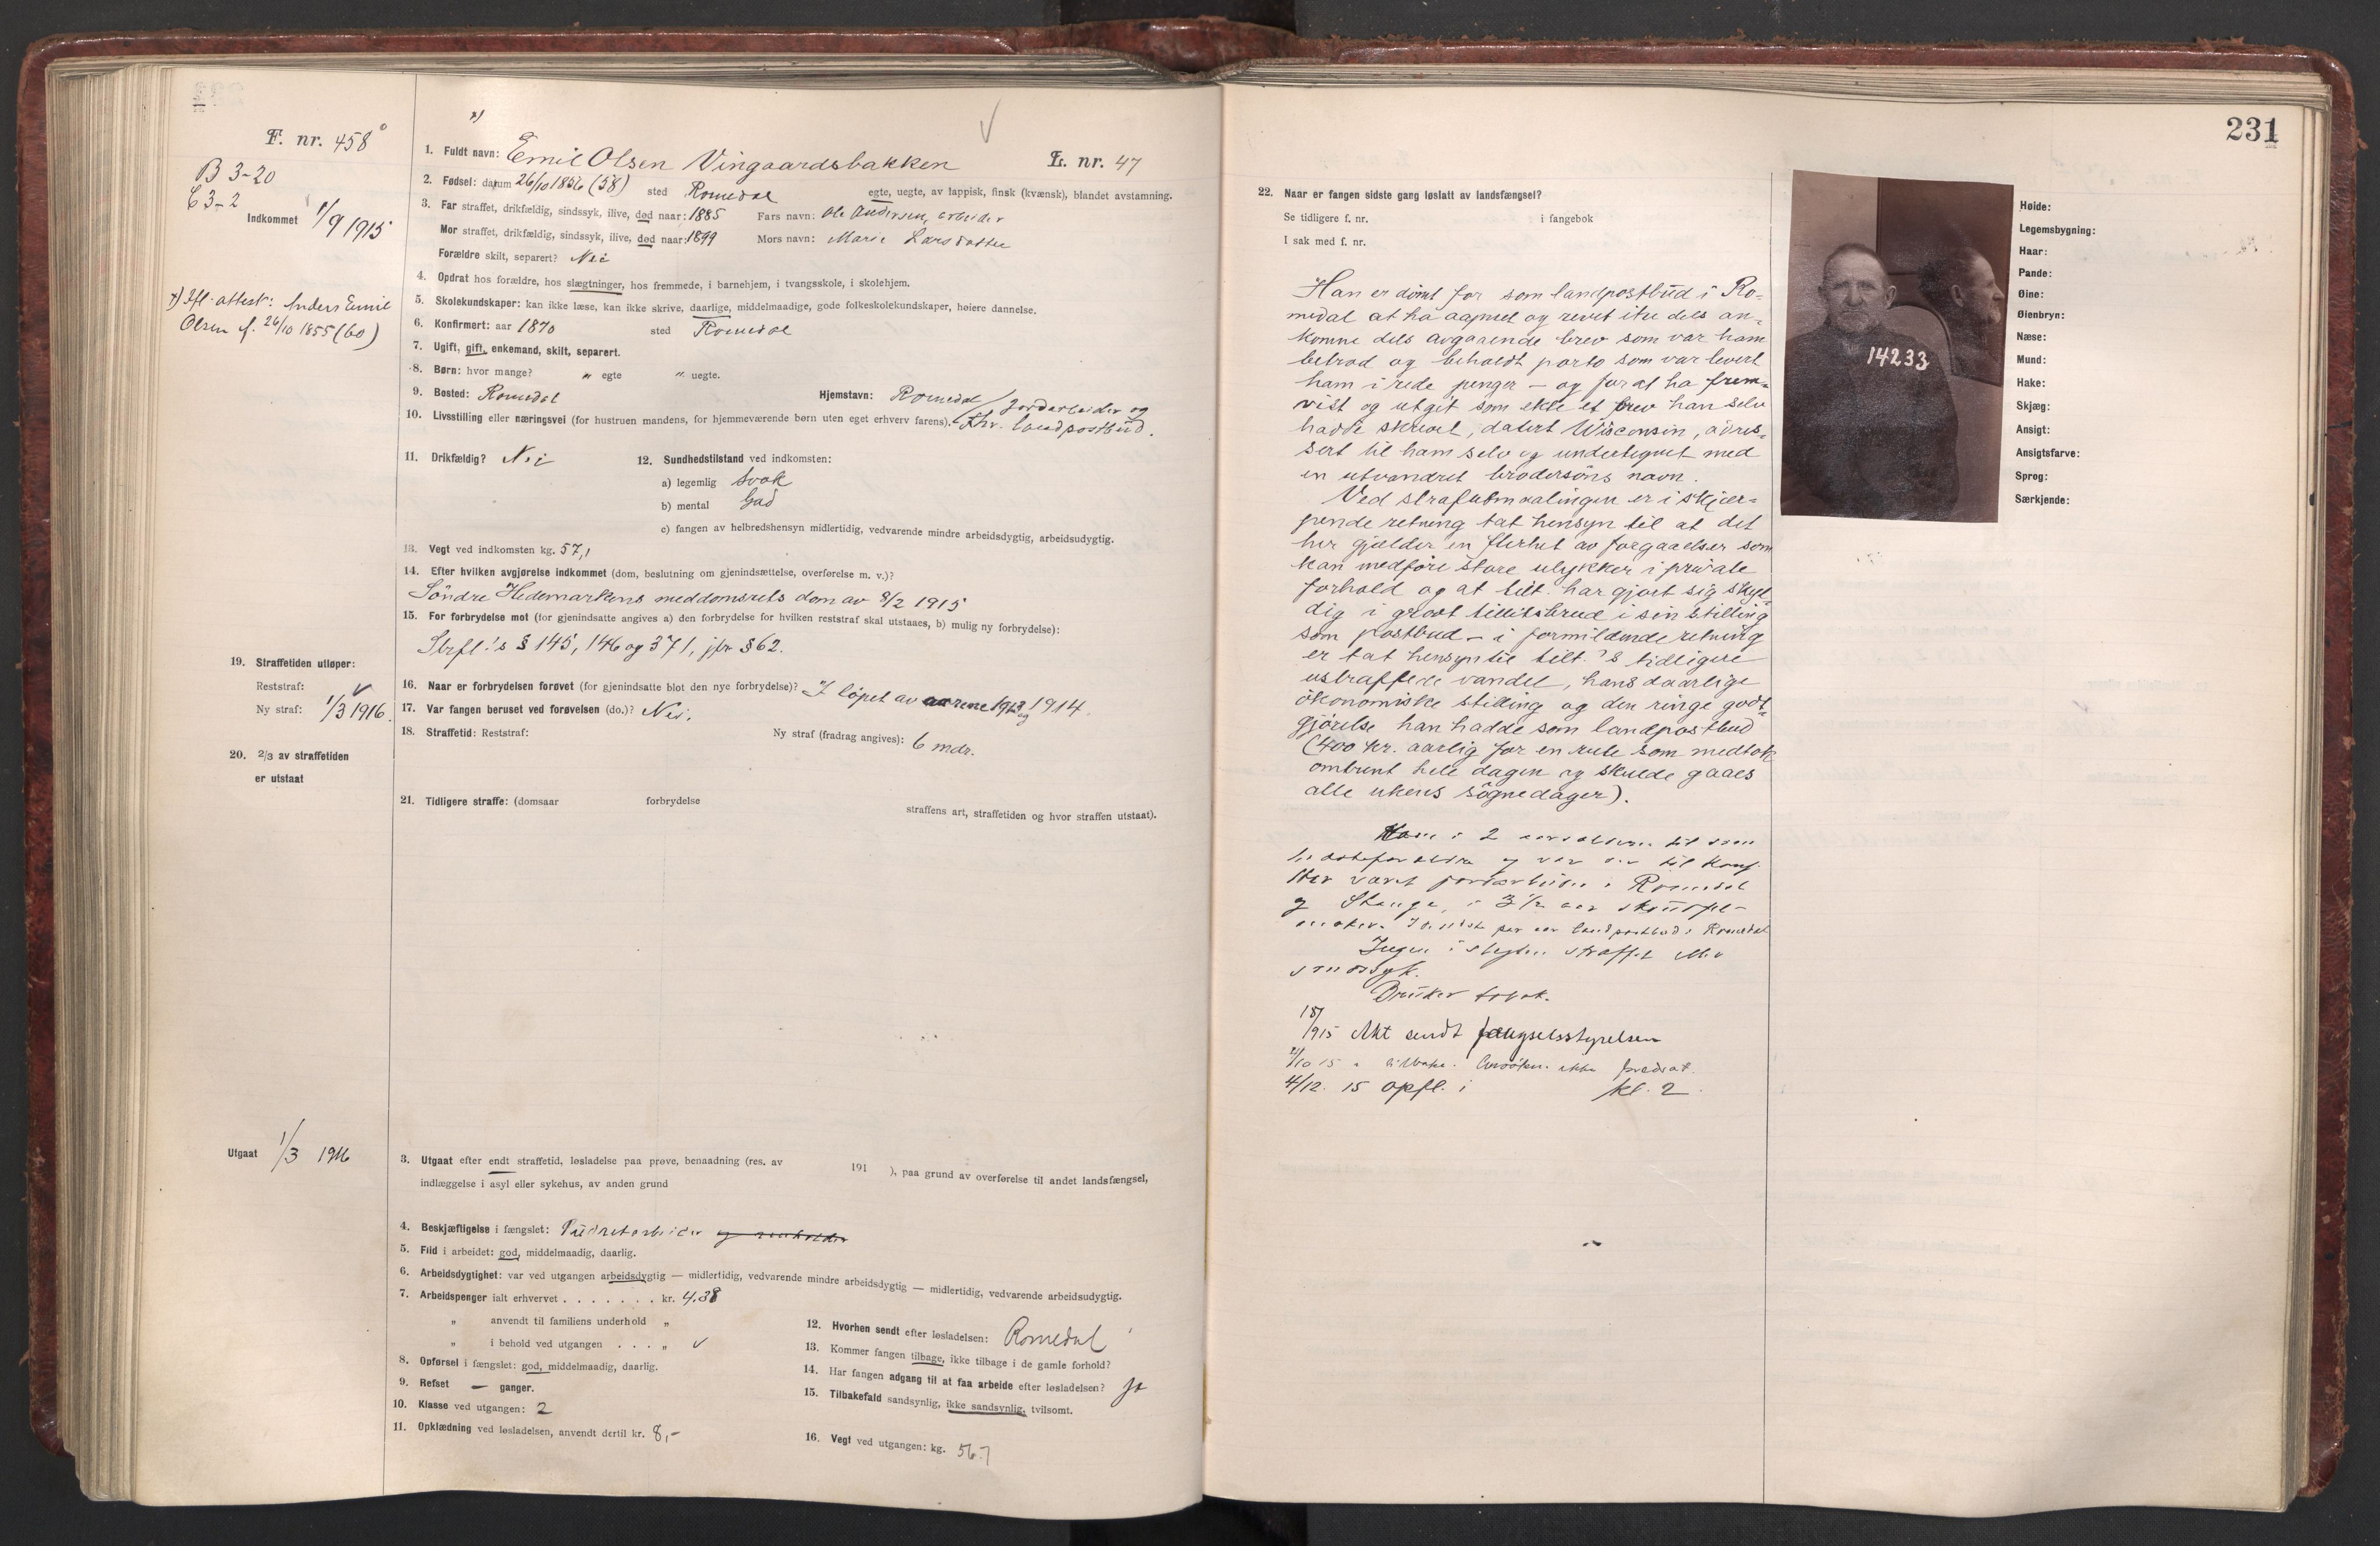 F. nr. 458
B 3-20
C 3-2
Indkommet 1/9 1915
x) Ifl. attest: Anders Emil
Olsen f. 26/10 1855 (60)
19. Straffetiden utløper:
Reststraf:
Ny straf: 1/3 1916.
20. 2/3 av straffetiden
er utstaat
Utgaat 1/3 1916
x)
1. Fuldt navn: Emil Olsen Vingaardsbakken L. nr. 47
2. Fødsel: datum 26/10 1856 (58) sted Romedal egte, uegte, av lappisk, finsk (kvænsk), blandet avstamning.
3. Far straffet, drikfældig, sindssyk, ilive, død naar: 1885 Fars navn: Ole Andersen, arbeider
Mor straffet, drikfældig, sindssyk, ilive, død naar: 1899 Mors navn: Marie Larsdatter
Forældre skilt, separert? Nei
4. Opdrat hos forældre, hos slægtninger, hos fremmede, i barnehjem, i tvangsskole, i skolehjem.
5. Skolekundskaper: kan ikke læse, kan ikke skrive, daarlige, middelmaadige, gode folkeskolekundskaper, høiere dannelse.
6. Konfirmert: aar 1870 sted Romedal
7. Ugift, gift, enkemand, skilt, separert.
8. Børn: hvor mange? " egte " uegte.
9. Bosted: Romedal Hjemstavn: Romedal
10. Livsstilling eller næringsvei (for hustruen mandens, for hjemmeværende børn uten eget erhverv farens). Jordarbeider og
fhv. landpostbud.
11. Drikfældig? Nei 12. Sundhedstilstand ved indkomsten:
a) legemlig Svak
b) mental God
c) fangen av helbredshensyn midlertidig, vedvarende mindre arbeidsdygtig, arbeidsudygtig.
13. Vegt ved indkomsten kg. 57,1
14. Efter hvilken avgjørelse indkommet (dom, beslutning om gjenindsættelse, overførelse m. v.)?
Söndre Hedemarkens meddomsrets dom av 8/2 1915
15. For forbrydelse mot (for gjenindsatte angives a) den forbrydelse for hvilken reststraf skal utstaaes, b) mulig ny forbrydelse):
Strfl.'s § 145, 146 og 371, jfr § 62.
16. Naar er forbrydelsen forøvet (for gjenindsatte blot den nye forbrydelse)? I löpet av aarene 1913 og 1914.
17. Var fangen beruset ved forøvelsen (do.)? Nei.
18. Straffetid: Reststraf: Ny straf (fradrag angives): 6 mdr.
21. Tidligere straffe: (domsaar forbrydelse straffens art, straffetiden og hvor straffen utstaat).
3. Utgaat efter endt straffetid, løsladelse paa prøve, benaadning (res. av 191 ), paa grund av overførelse til andet landsfængsel,
indlæggelse i asyl eller sykehus, av anden grund
4. Beskjæftigelse i fængslet: Pudretarbeider og renholder
5. Flid i arbeidet: god, middelmaadig, daarlig.
6. Arbeidsdygtighet: var ved utgangen arbeidsdygtig — midlertidig, vedvarende mindre arbeidsdygtig — midlertidig, vedvarende arbeidsudygtig.
7. Arbeidspenger ialt erhvervet . . . . . . . kr. 4.38
" anvendt til familiens underhold "
" i behold ved utgangen . . . "
8. Opførsel i fængslet: god, middelmaadig, daarlig.
9. Refset — ganger.
10. Klasse ved utgangen: 2
11. Opklædning ved løsladelsen, anvendt dertil kr. 8,-
12. Hvorhen sendt efter løsladelsen: Romedal
13. Kommer fangen tilbage, ikke tilbage i de gamle forhold?
14. Har fangen adgang til at faa arbeide efter løsladelsen? Ja
15. Tilbakefald sandsynlig, ikke sandsynlig, tvilsomt.
16. Vegt ved utgangen: kg. 56.7
231
22. Naar er fangen sidste gang løslatt av landsfængsel?
Se tidligere f. nr. i fangebok
I sak med f. nr.
Han er dömt for som landpostbud i Ro-
medal at ha aapnet og revet itu dels an-
komne dels avgaaende brev som var ham
betrod og beholdt porto som var levert
ham i rede penger — og for at ha frem-
vist og utgit som ekte et brev han selv
hadde skrevet, datert Wisconsin, adres-
sert til ham selv og undertegnet med
en utvandret brodersöns navn.
Ved strafutmaalingen er i skjær-
pende retning tat hensyn til at det
her gjælder en flerhet av forgaaelser som
kan medföre store ulykker i private
forhold og at tilt. har gjort sig skyl-
dig i grovt tillitsbrud i sin stilling
som postbud — i formildende retning
er tat hensyn til tilt.'s tidligere
ustraffede vandel, hans daarlige
ökonomiske stilling og den ringe godt-
gjörelse han hadde som landpostbud
(400 kr. aarlig for en rute som medtok
omtrent hele dagen og skulde gaaes
alle ukens sögnedager).
Kom i 2 aarsalderen til sine
bedsteforældre og var der til konf.
Har været jordarbeider i Romedal
og Stange, i 3 1/2 aar
I de sidste par aar landpostbud i Romedal
Ingen i slegten straffet eller
sindssyk.
Bruker tobak.
18/9 15 Akt sendt fængselsstyrelsen
2/10 15 " tilbake. Ansökn. ikke
4/12. 15 opfl. i kl. 2.
14233
Høide:
Legemsbygning:
Haar:
Pande:
Øine:
Øienbryn:
Næse:
Mund:
Hake:
Skjæg:
Ansigt:
Ansigtsfarve:
Sprog:
Særkjende: